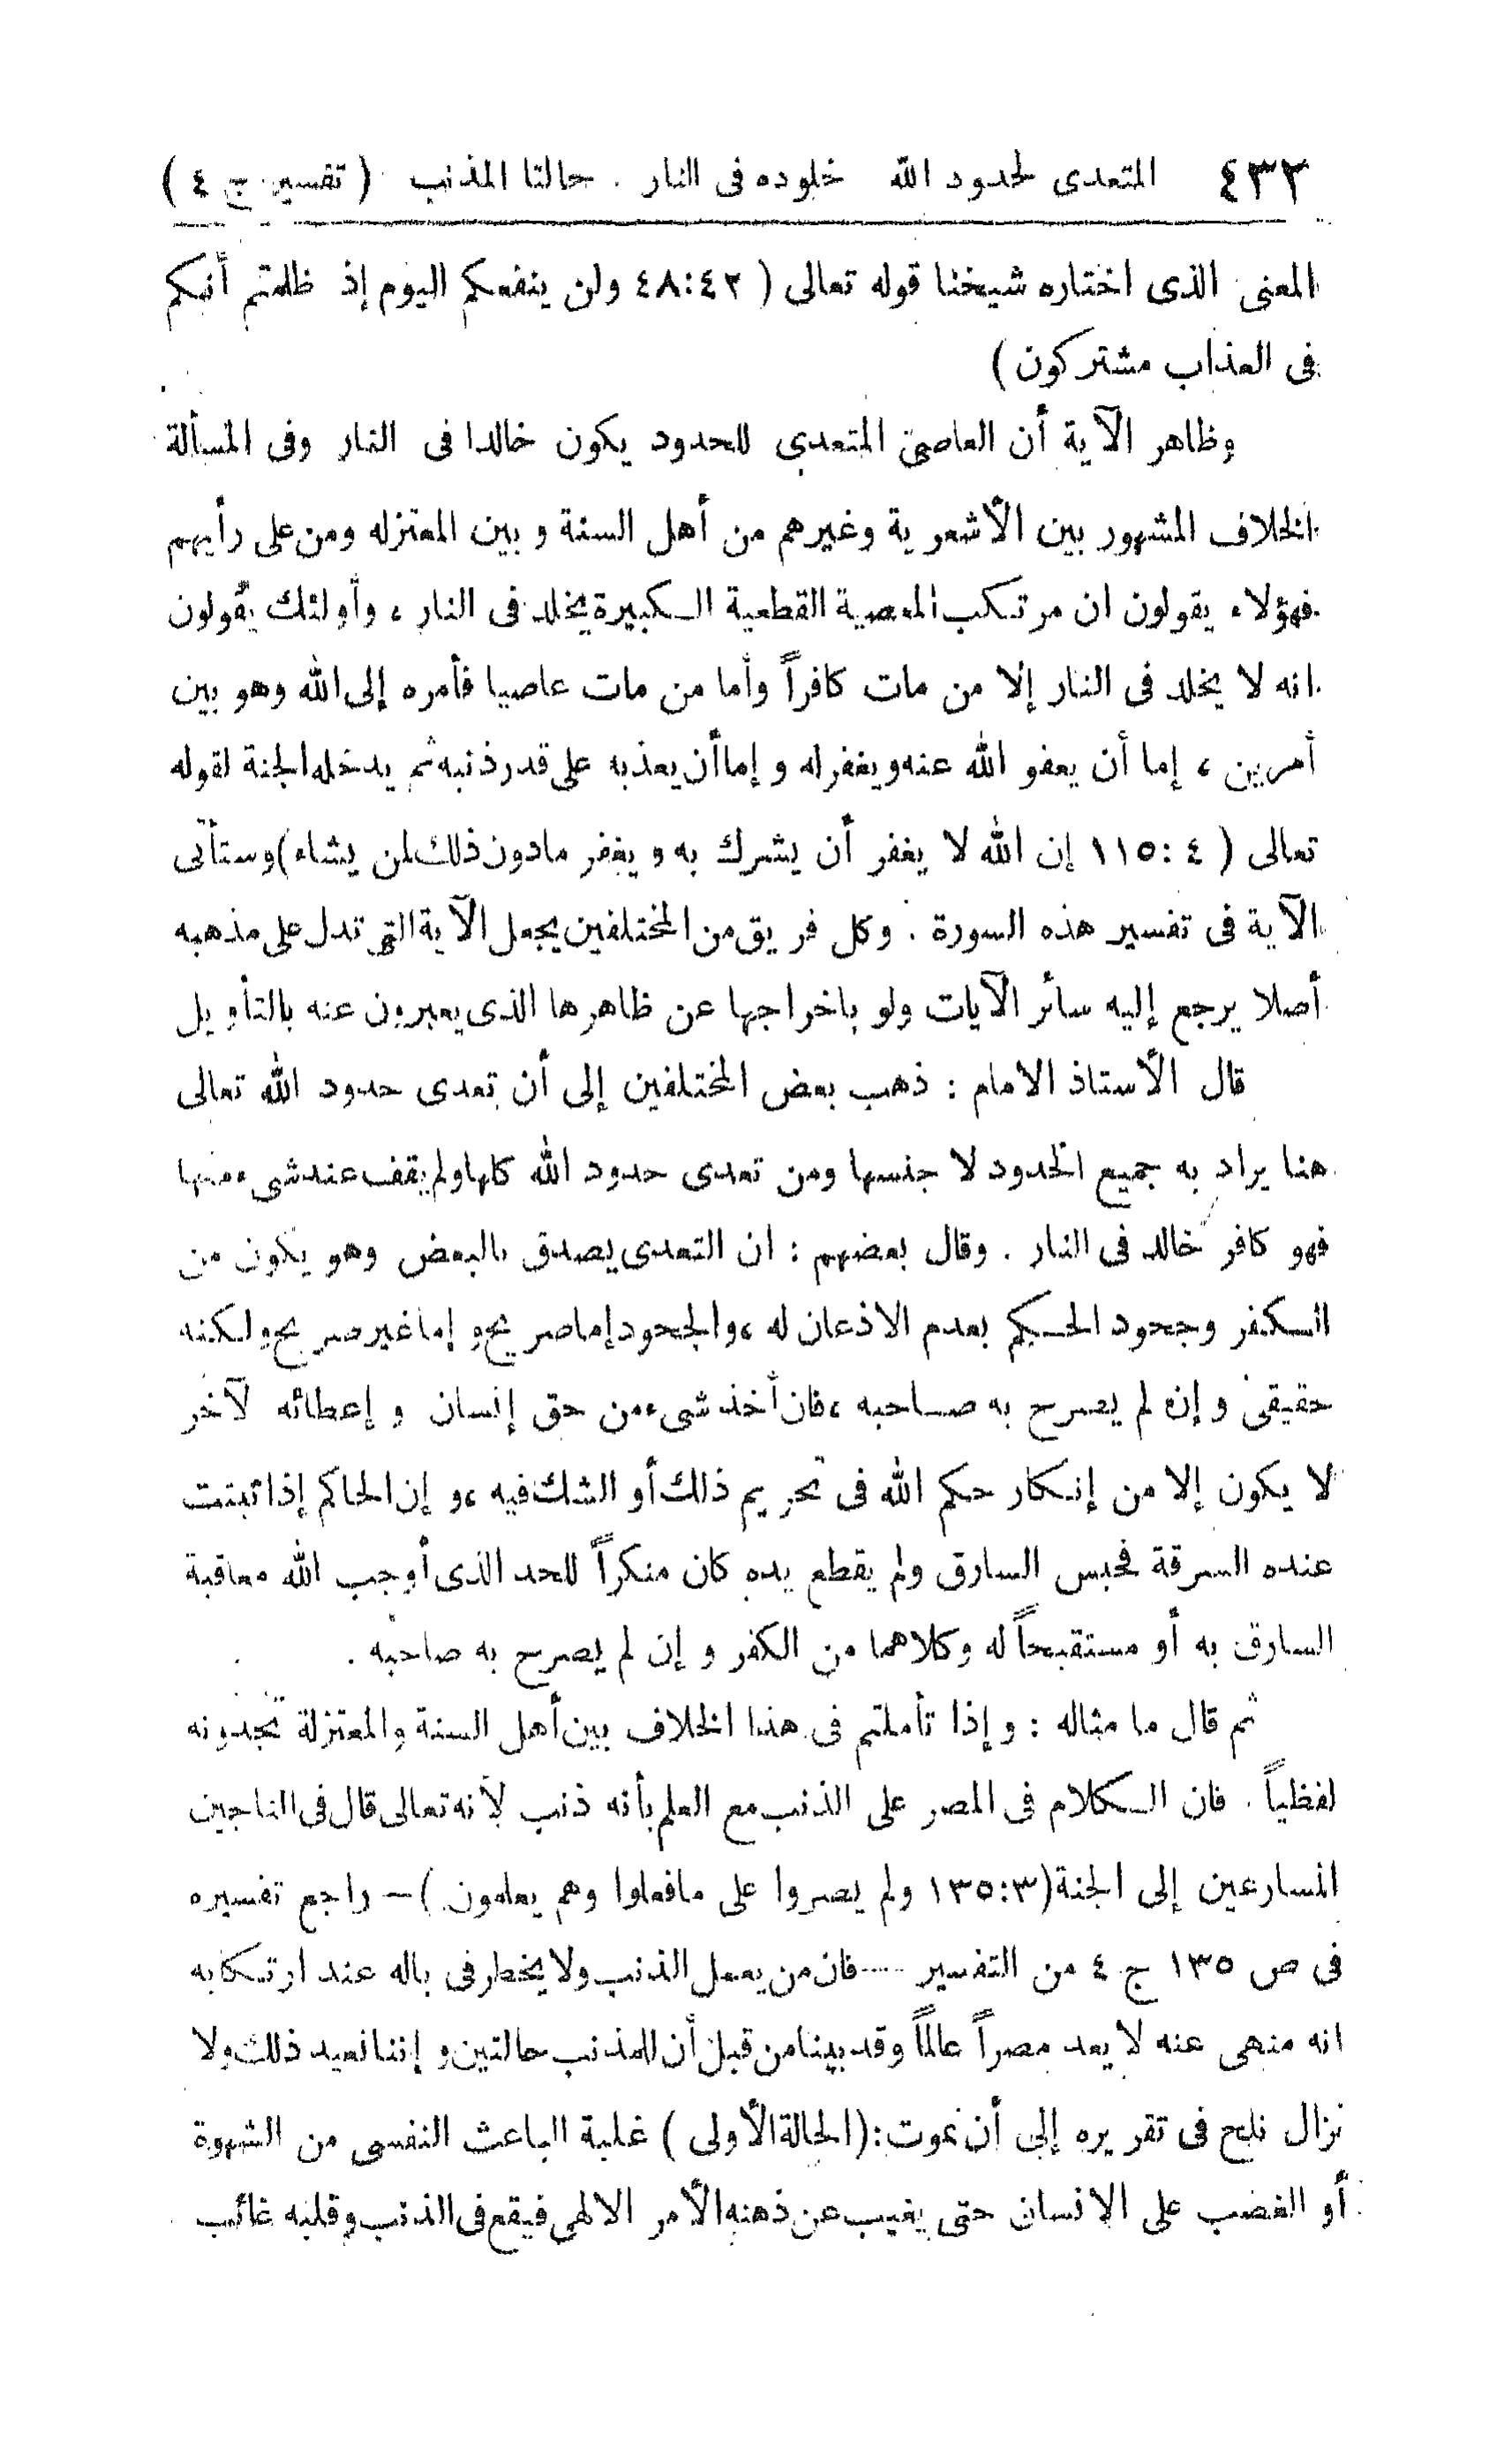 ٤٣٢ المتعدى لحدود الله خلوده فى النار . حالتا المذنب ( تفسير ج ٤ )
المعنى الذى اختاره شيخنا قوله تعالى ( ٤٨:٤٢ ولن ينفعكم اليوم إذ ظلمتم أنكم
فى العذاب مشتركون )
وظاهر الآية أن العاصى المتعدى للحدود يكون خالدا فى النار وفى المسألة
الخلاف المشهور بين الأشعرية وغيرهم من أهل السنة وبين المعتزله ومن على رأيهم
فهؤلاء يقولون ان مرتكب المعصية القطعية الكبيرة يخلد فى النار ، وأولئك يقولون
انه لا يخلد فى النار إلا من مات كافراً وأما من مات عاصيا فأمره إلى الله وهو بين
أمرين ، إما أن يعفو الله عنه ويغفر له وإما أن يعذبه على قدر ذنبه ثم يدخله الجنة لقوله
تعالى ( ٤ : ١١٥ إن الله لا يغفر أن يشرك به ويغفر مادون ذلك لمن يشاء ) وستأتى
الآية فى تفسير هذه السورة . وكل فريق من المختلفين يجعل الآية التى تدل على مذهبه
أصلا يرجع إليه سائر الآيات ولو باخراجها عن ظاهرها الذى يعبرون عنه بالتأويل
قال الأستاذ الامام : ذهب بعض المختلفين إلى أن تعدى حدود الله تعالى
هنا يراد به جميع الحدود لا جنسها ومن تعدى حدود الله كلها ولم يقف عند شىء منها
فهو كافر خالد فى النار . وقال بعضهم : ان التعدى يصدق بالبعض وهو يكون من
الكفر وجحود الحكم بعدم الاذعان له ، والجحود إما صريح وإما غير صريح ولكنه
حقيقى وإن لم يصرح به صاحبه ، فان أخذ شىء من حق إنسان وإعطائه لآخر
لا يكون إلا من إنكار حكم الله فى تحريم ذلك أو الشك فيه ، وإن الحاكم إذا ثبتت
عنده السرقة فحبس السارق ولم يقطع يده كان منكراً للحد الذى أوجب الله معاقبة
السارق به أو مستقبحاً له وكلاهما من الكفر وإن لم يصرح به صاحبه .
ثم قال ما مثاله : وإذا تأملتم فى هذا الخلاف بين أهل السنة والمعتزلة تجدونه
لفظياً . فان الكلام فى المصر على الذنب مع العلم بأنه ذنب لأنه تعالى قال فى الناجين
المسارعين إلى الجنة (١٣٥:٣ ولم يصروا على مافعلوا وهم يعلمون )— راجع تفسيره
فى ص ١٣٥ ج ٤ من التفسير — فان من يعمل الذنب ولا يخطر فى باله عند ارتكابه
انه منهى عنه لا يعد مصراً عالماً وقد بينا من قبل أن للمذنب حالتين وإننا نعيد ذلك ولا
نزال نلح فى تقريره إلى أن نموت : (الحالة الأولى ) غلبة الباعث النفسى من الشهوة
أو الغضب على الانسان حتى يغيب عن ذهنه الأمر الالهى فيقع فى الذنب وقلبه غائب